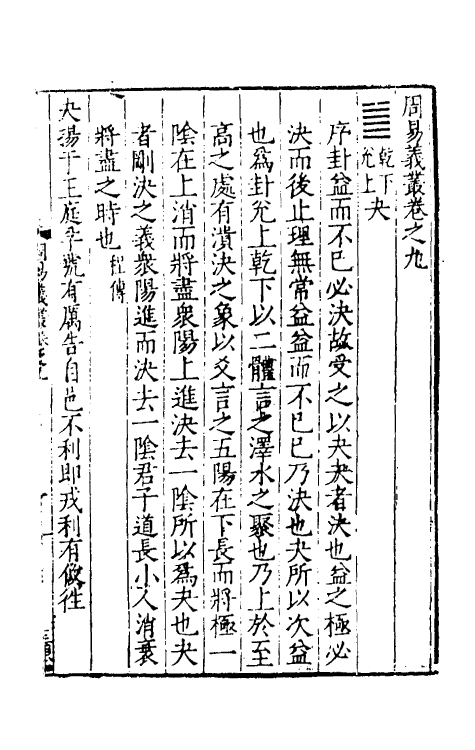 周易義叢卷之九
乾下
兌上
夬
序卦益而不已必決故受之以夬夬者決也益之極必
決而後止理無常益益而不已已乃決也夬所以次益
也爲卦兌上乾下以二體言之澤水之聚也乃上於至
高之處有潰決之象以爻言之五陽在下長而將極一
陰在上消而將盡衆陽上進決去一陰所以爲夬也夬
者剛決之義衆陽進而決去一陰君子道長小人消衰
將盡之時也程傳
夬揚于王庭孚號有厲告自邑不利即戎利有攸往